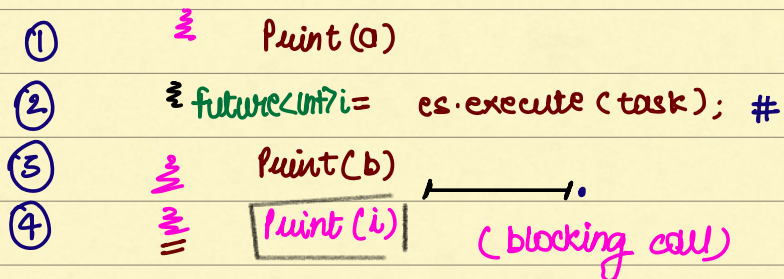 ① Print(a)
② future<int> i = es.execute(task); #
③ Print(b)
④ Print(i) (blocking call)